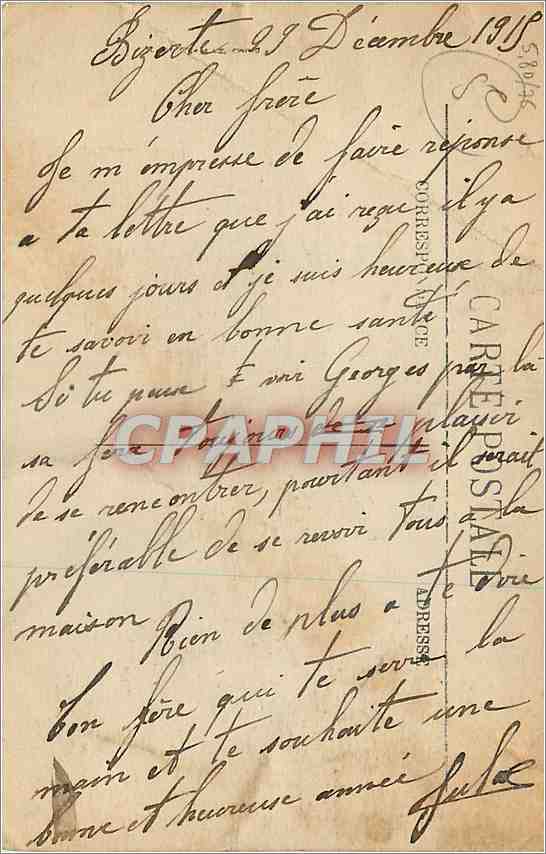 Bizerte 29 Décembre 1915
Cher frère
Je m'empresse de faire réponse
a ta lettre que j'ai reçu il y a
quelques jours et je suis heureux de
te savoir en bonne santé
Si tu peux voir Georges par là
sa fera toujours de plaisir
de se rencontrer, pourtant il serait
préférable de se revoir tous a la
maison
Rien de plus a te dire
Ton frère qui te serre la
main et te souhaite une
bonne et heureuse année
CARTE POSTALE
CORRESPONDANCE
ADRESSE
580/76
CPAPHIL